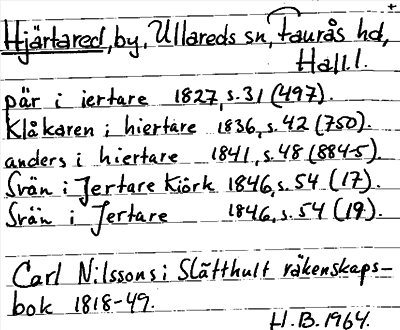 Hjärtared, by, Ullareds sn, Faurås hd,
Hall.l.
pär i iertare 1827, s.31 (497).
Klåkaren i hiertare 1836, s.42 (750).
anders i hiertare 1841, s.48 (8845).
Svän i Jertare Kiörk 1846, s.54 (17).
Svän i Jertare 1846, s.54 (19).
Carl Nilssons i Slätthult räkenskaps-
bok 1818-49.
H.B. 1964.